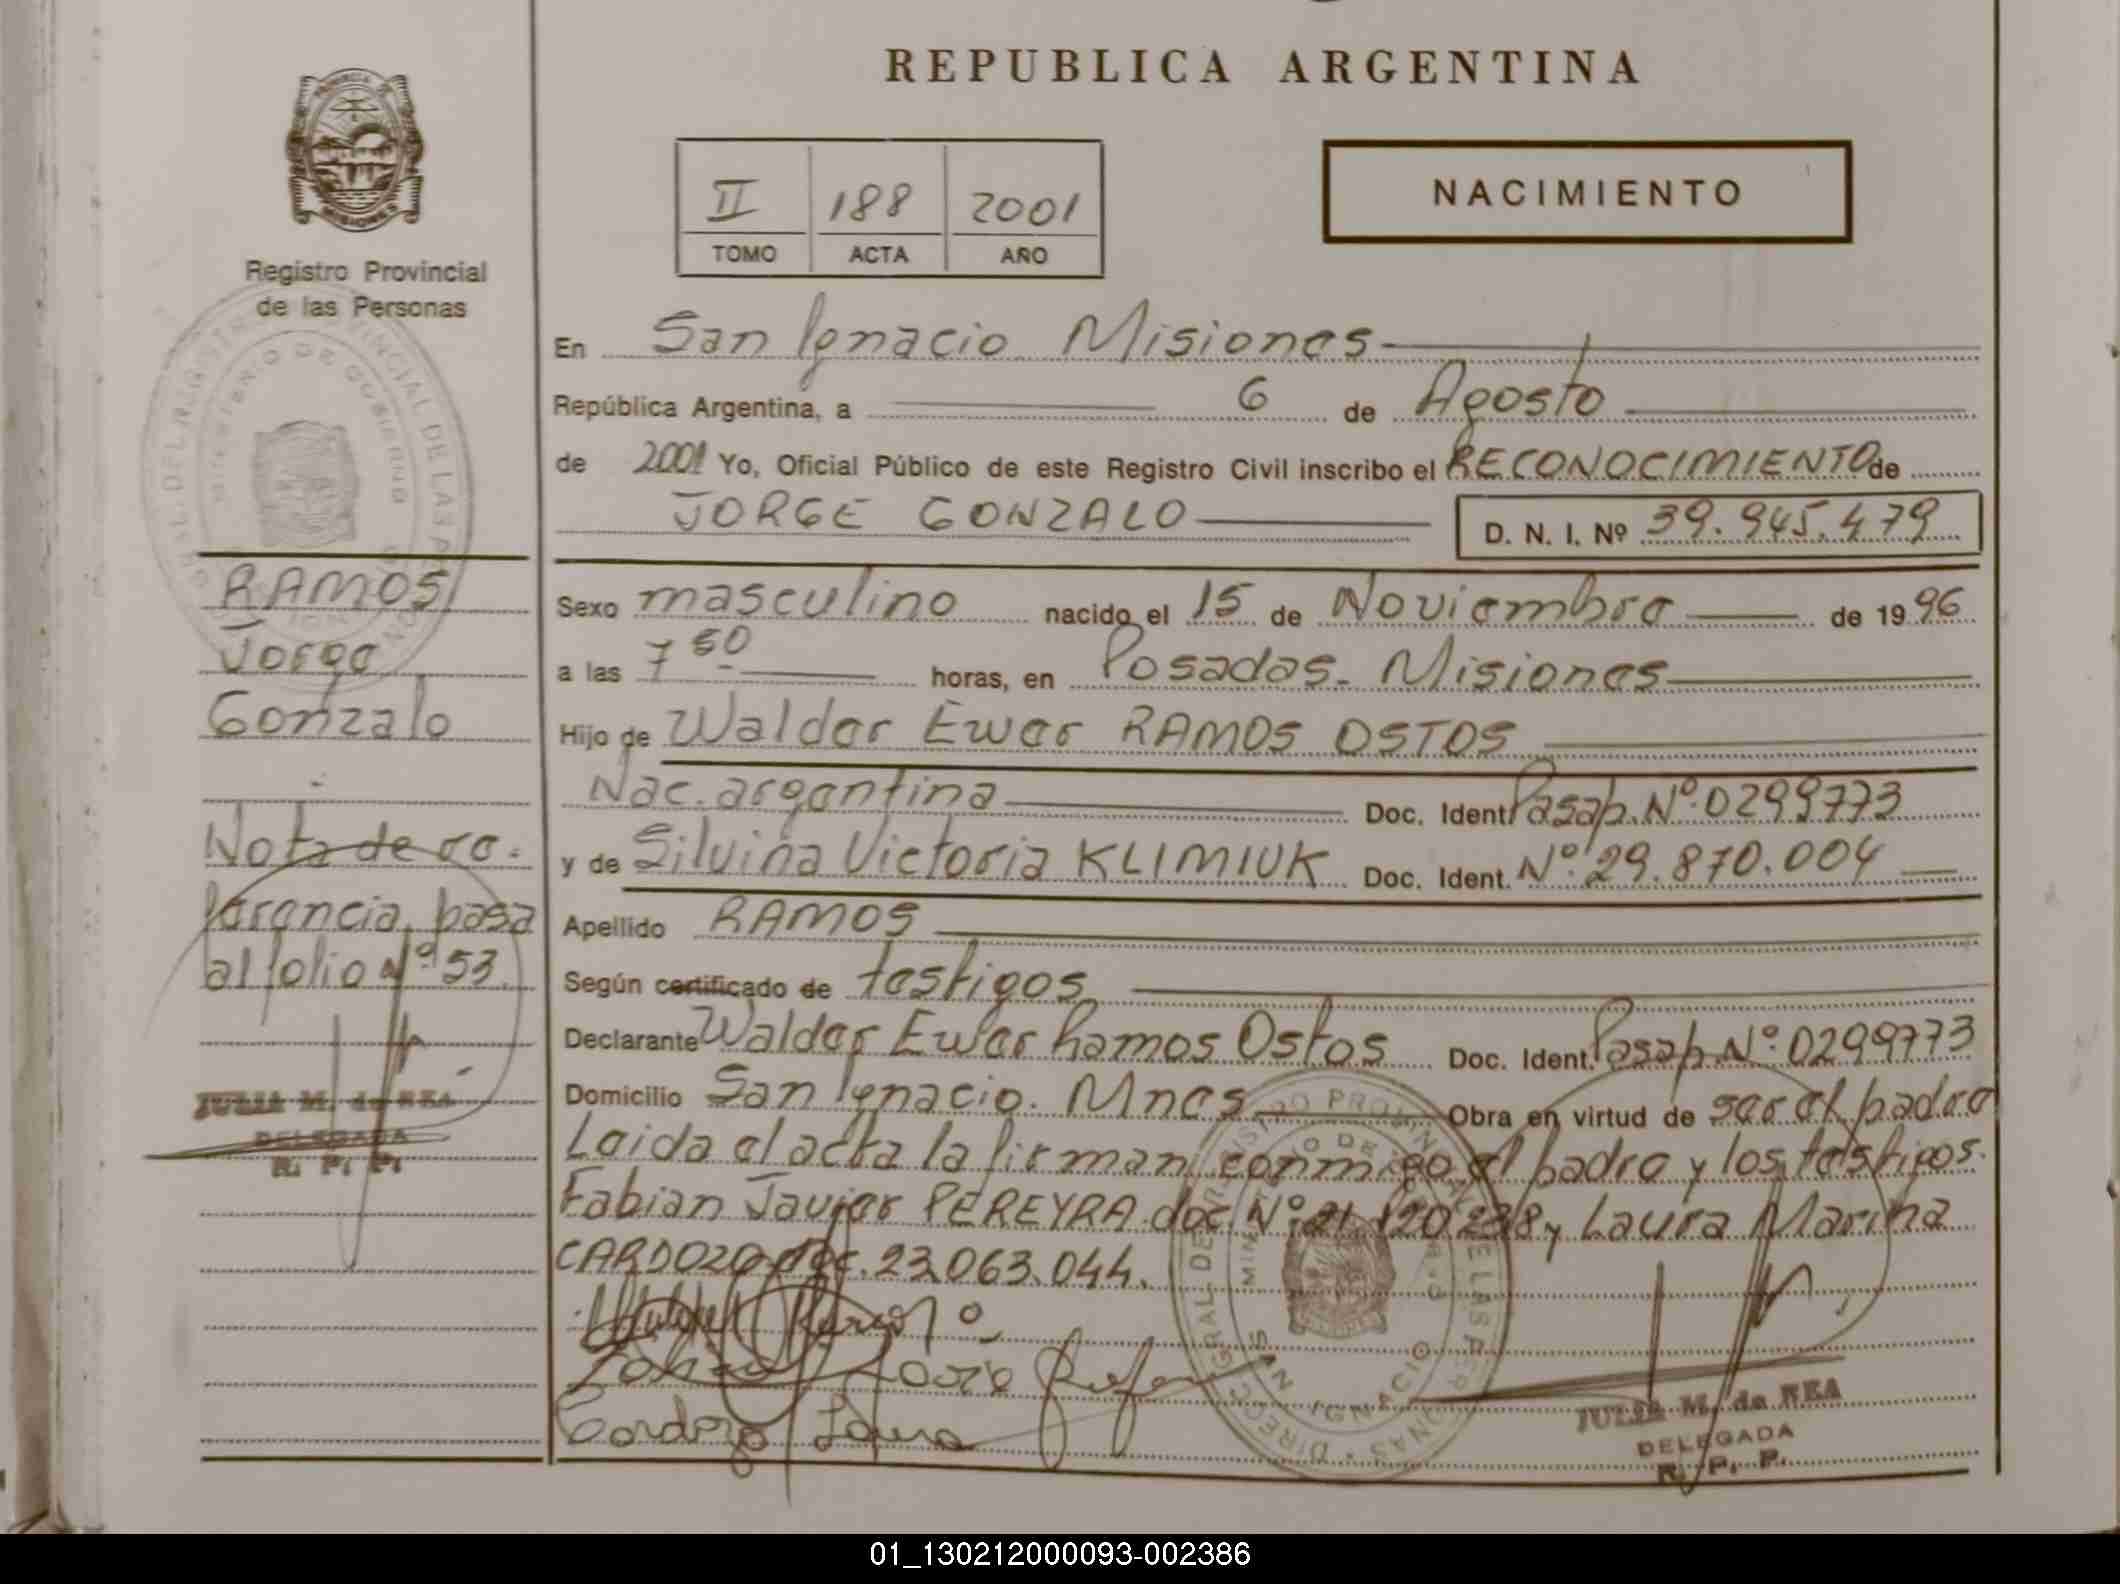 REPUBLICA ARGENTINA
II 188 2001
TOMO ACTA AÑO
NACIMIENTO
Registro Provincial
de las Personas
En San Ignacio Misiones
República Argentina, a 6 de Agosto
de 2001 Yo, Oficial Público de este Registro Civil inscribo el RECONOCIMIENTO de
JORGE GONZALO D. N. I. Nº 39.945.479
RAMOS
Jorge
Gonzalo
Nota de re-
ferencia pasa
al folio Nº 53.
JULIA M. de REA
DELEGADA
R. P. P.
Sexo masculino nacido el 15 de Noviembre de 1996
a las 7 50 horas, en Posadas - Misiones
Hijo de Walder Ewer RAMOS OSTOS
Nac. argentina Doc. Ident. Pasap. Nº 0299773
y de Silvina Victoria KLIMIUK Doc. Ident. Nº 29.870.004
Apellido RAMOS
Según certificado de testigos
Declarante Walder Ewer Ramos Ostos Doc. Ident. Pasap. Nº 0299773
Domicilio San Ignacio. Mnes Obra en virtud de ser el padre
Leida el acta la firman conmigo el padre y los testigos.
Fabian Javier PEREYRA doc. Nº 21.120.238 y Laura Marina
CARDOZO doc. 23.063.044.
Cardozo Laura
SAN IGNACIO
JULIA M. de REA
DELEGADA
R. P. P.
01_130212000093-002386